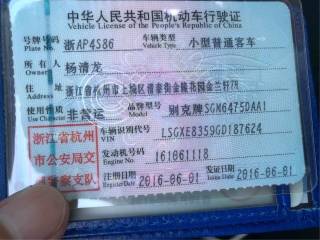 中华人民共和国机动车行驶证
Vehicle License of the People's Republic of China
号牌号码 浙AP4S86 车辆类型 小型普通客车
Plate No. Vehicle Type
所有人 杨清龙
Owner
住址 浙江省杭州市上城区清泰街金隆花园金兰轩7R
Address
使用性质 非营运 品牌型号 别克牌SGM6475DAA1
Use Character Model
浙江省杭州
市公安局交
警察支队
车辆识别代号 LSGXE8359GD187624
VIN
发动机号码 161061118
Engine No.
注册日期 2016-06-01 发证日期 2016-06-01
Register Date Issue Date